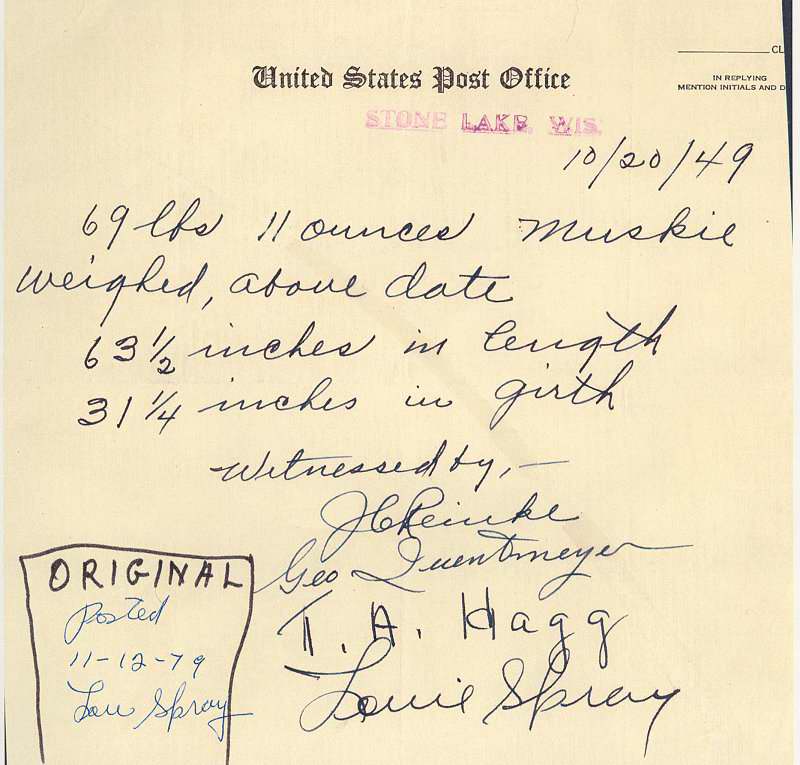 CL
United States Post Office
IN REPLYING
MENTION INITIALS AND D
STONE LAKE, WIS.
10/20/49
69 lbs 11 ounces Muskie
weighed, above date
63 1/2 inches in length
31 1/4 inches in girth
Witnessed by, —
J C Reinke
Geo Quentmeyer
T. A. Hagg
Louie Spray
ORIGINAL
Posted
11-12-79
Lou Spray